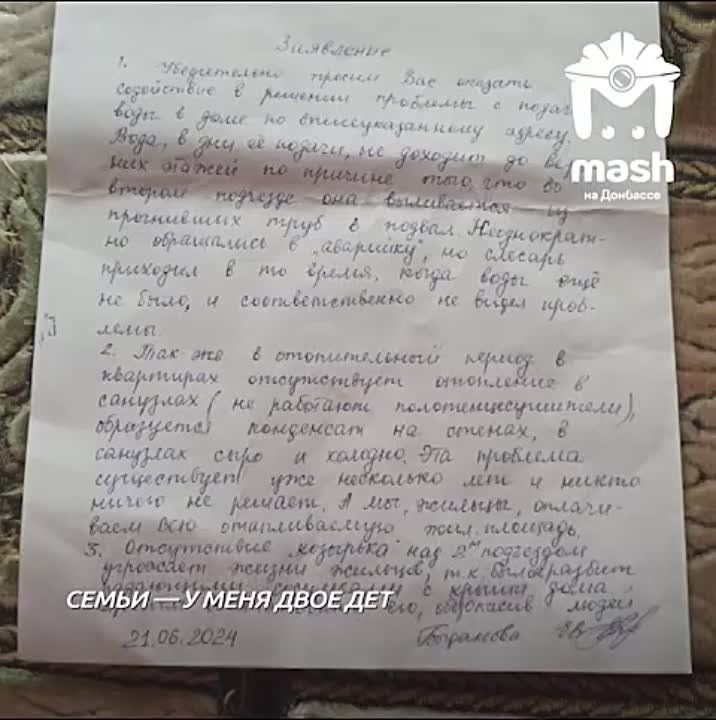 Заявление
1. Убедительно просим Вас оказать
содействие в решении проблемы с подач
воды в доме по вышеуказанному адресу.
Вода, в дни её подачи, не доходит до вер
них этажей по причине того, что во
втором подъезде она выливается из
прогнивших труб в подвал. Неоднократ-
но обращались в "аварийку", но слесарь
приходил в то время, когда воды ещё
не было, и соответственно не видел проб-
лемы.
2. Так же в отопительный период в
квартирах отсутствует отопление в
санузлах (не работают полотенцесушители),
образуется конденсат на стенах, в
санузлах сыро и холодно. Эта проблема
существует уже несколько лет и никто
ничего не решает. А мы, жильцы, оплачи-
ваем всю отапливаемую жил. площадь.
3. Отсутствие козырька над 2ым подъездом
угрожает жизни жильцов, т.к. был разбит
падающими с крыши дома
его, обезопасив людей
21.06.2024
mash
на Донбассе
СЕМЬИ — У МЕНЯ ДВОЕ ДЕТ